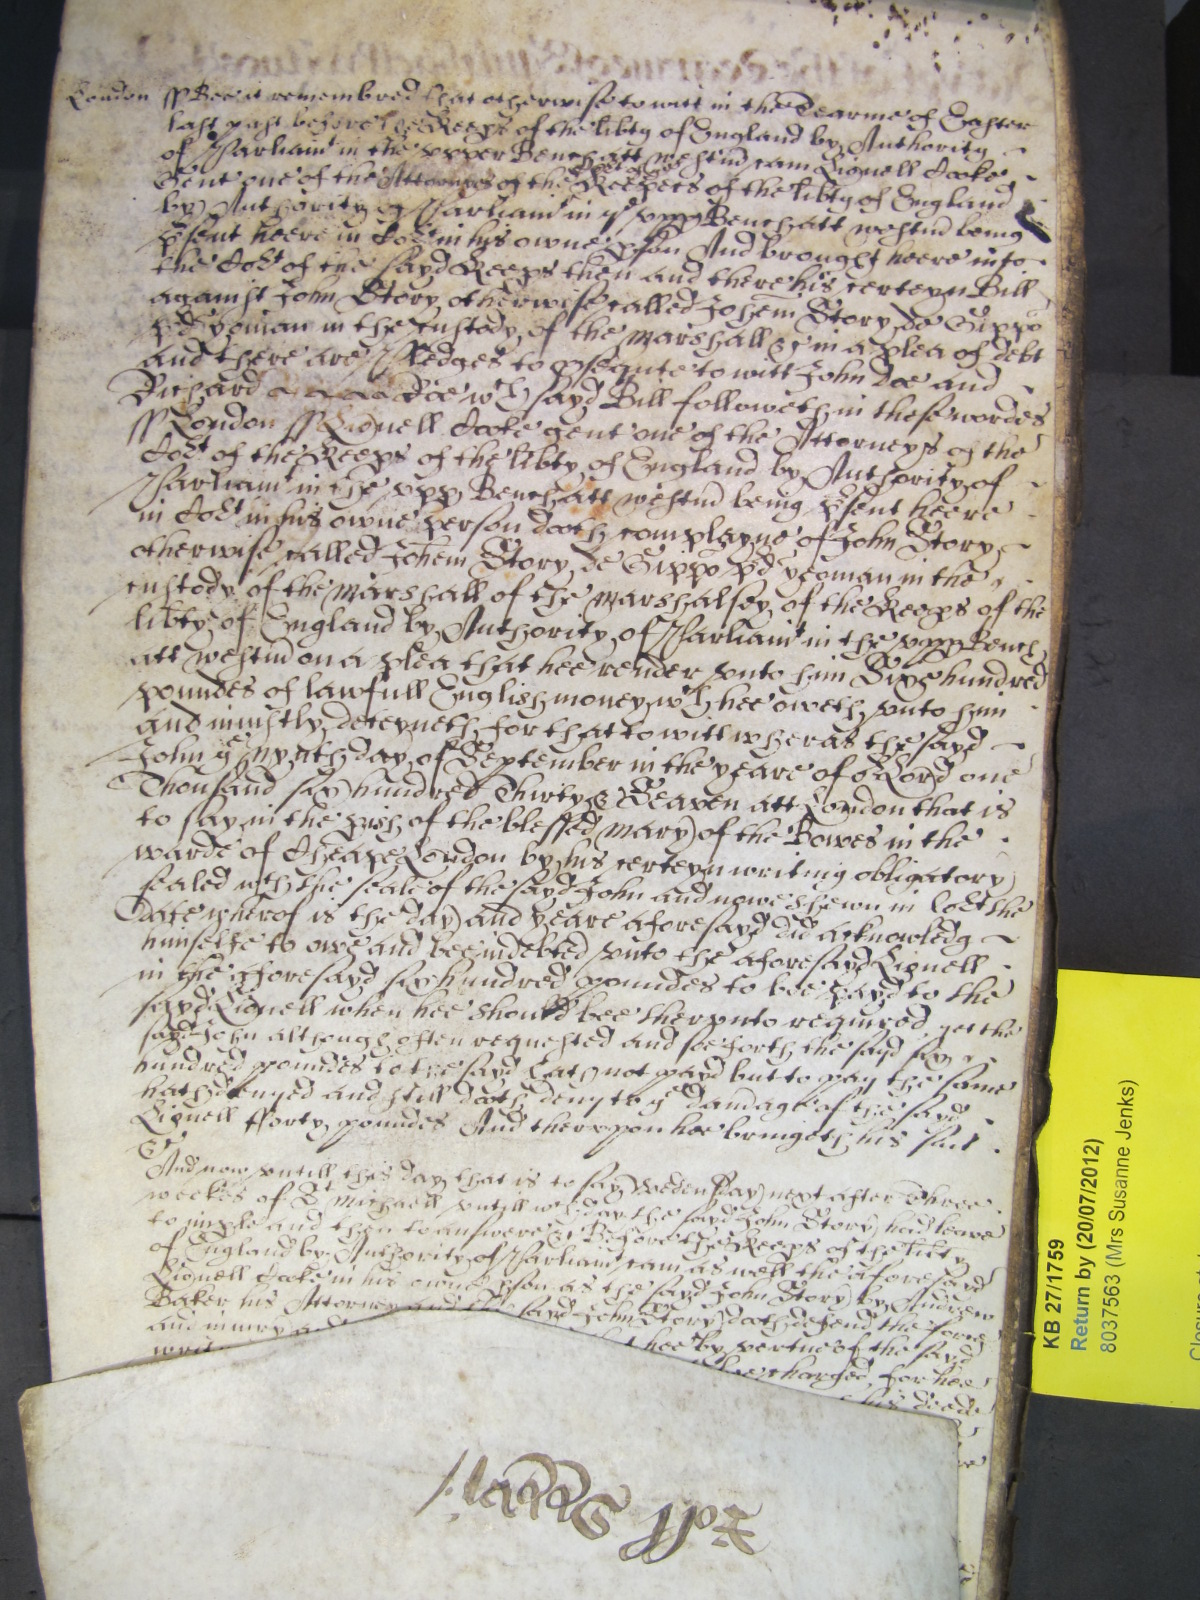 London ss Bee it remembred that otherwise to witt in the Tearme of Easter
last past before the Keeps of the libty of England by Authority
of Parliamt in the upper Bench att westm cam Lionell Cooke
Gent one of the Attorneys of the Cort of the Keepers of the libty of England
by Authority of Parliamt in ye upp Bench att westm being
psent heere in Cort in his owne pson And brought heere into
the Cort of the sayd Keeps then and there his certeyn Bill
against John Story otherwise called Johem Story de Gippo
pd yoman in the custody of the Marshall &c in a plea of debt
and there are Pledges to psequte to witt John Doe and
Richard Roe wch sayd Bill followeth in these wordes
ss London ss Lionell Cooke gent one of the Attorneys of the
Cort of the Keeps of the libty of England by Authority of
Parliamt in the upp Bench att westm being psent heere
in Cort in his owne person doeth complayne of John Story
otherwise called Johem Story de Gippo pd yeoman in the
custody of the Marshall of the Marshalsey of the Keeps of the
libty of England by Authority of Parliamt in the upp Bench
att westm on a plea that hee render unto him Sixe hundred
poundes of lawfull English money wch hee oweth unto him
and iniustly deteyneth for that to witt wheras the sayd
John ye Nynth day of September in the yeare of or Lord one
Thousand six hundred Thirty & Seaven att London that is
to say in the pish of the blessed Mary of the Bowes in the
warde of Cheape London by his certeyn writing obligatory
sealed wth the seale of the sayd John and nowe shewn in Cort the
Date wherof is the day and yeare aforesayd did acknowledg
himselfe to owe and bee indebted unto the aforesayd Lionell
in the aforesayd six hundred poundes to bee payd to the
sayd Lionell when hee should bee therunto required yet the
sayd John although often requested and soe forth the sayd six
hundred poundes to the sayd hath not payd but to pay the same
hath denyed and still doeth deny to ye damage of the sayd
Lionell fforty poundes And therupon hee bringeth his suit
&c
And now untill this day that is to say Wedensday next after Three
weekes of St Michaell untill wch day the sayd John Story had leave
to imple and then to answere &c Before the Keeps of the libty
of England by Authority of Parliamt cam as well the aforesayd
Lionell Cooke in his owne pson as the sayd John Story by Andrew
Baker his Attorney And the sayd John Story doeth defend the force
and iniury hee by vertue of the sayd
writ bee charged for hee
his deede
KB 27/1759
Return by (20/07/2012)
8037563 (Mrs Susanne Jenks)